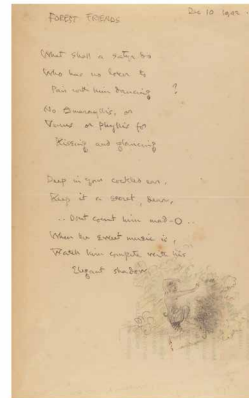 FOREST FRIENDS
Dec 10 1902 -
What shall a satyr do
Who has no lover to
Pair with him dancing ?
No Amaryllis, or
Venus or Phyllis for
Kissing and glancing
Deep in your cockled ear.
Keep it a secret, dear,
Don't count him mad -
When the sweet music is,
Watch him compete with his
Elegant shadow.